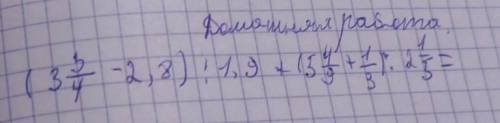 Домашняя работа.
(3 3/4 - 2,8) : 1,9 + (5 4/9 + 1/3) : 2 1/5 =